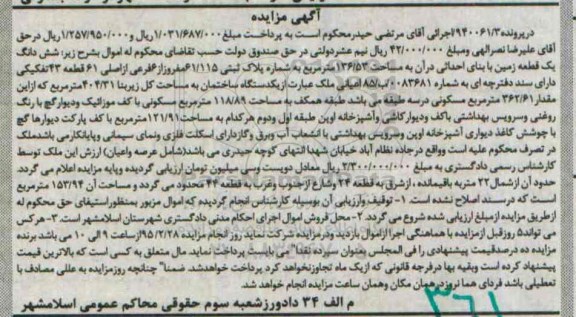 آگهی مزایده
درپرونده۹۴۰۰۶۱/۳اجرائی آقای مرتضی حیدرمحکوم است به پرداخت مبلغ۱/۰۳۱/۶۸۷/۰۰۰ریال و۱/۲۵۷/۹۵۰/۰۰۰ریال درحق
آقای علیرضا نصرالهی ومبلغ ۴۲/۰۰۰/۰۰۰ ریال نیم عشردولتی در حق صندوق دولت حسب تقاضای محکوم له اموال بشرح زیر: شش دانگ
یک قطعه زمین با بنای احداثی درآن به مساحت۱۳۶/۵۳مترمربع به شماره پلاک ثبتی ۶۱/۱۱۵مفروزاز۶فرعی ازاصلی ۶۱ قطعه ۴۳تفکیکی
دارای سند دفترچه ای به شماره ۰۰۸۳۶۸۱ب/۸۵ ملک عبارت ازیکدستگاه ساختمان به مساحت کل زیربنا ۴۰۴/۳۱مترمربع که ازاین
مقدار۳۶۲/۶۱ مترمربع مسکونی درسه طبقه می باشد طبقه همکف به مساحت ۱۱۸/۸۹ مترمربع مسکونی با کف موزائیک ودیوارگچ با رنگ
روغنی وسرویس بهداشتی باکف ودیوارکاشی وآشپزخانه اوپن طبقه اول ودوم هرکدام به مساحت۱۲۱/۹۱مترمربع با کف پارکت دیوارها گچ
با جوشش کاغذ دیواری آشپزخانه اوپن وسرویس بهداشتی با انشعاب آب وبرق وگازدارای اسکلت فلزی ونمای سیمانی وپایانکارمی باشدملک
در تصرف محکوم علیه است وواقع درجاده نظام آباد خیابان شهدا انتهای کوچه حیدری می باشد(شامل عرصه واعیان) ارزش این ملک توسط
کارشناس رسمی دادگستری به مبلغ ۲/۳۰۰/۰۰۰/۰۰۰ ریال معادل دویست وسی میلیون تومان ارزیابی گردیده وپایه مزایده اعلام می گردد.
حدود آن ازشمال۲۲ متربه باقیمانده ، ازشرق به قطعه ۲۴ وشارع ازجنوب وغرب به قطعه ۴۴ محدود می گردد و مساحت آن ۱۵۳/۹۴ مترمربع
است که درسند اصلاح نشده است. ۱- توقیف وارزیابی آن بوسیله کارشناس انجام گردیده که اموال مزبور بمنظوراستیفای حق محکوم له
ازطریق مزایده ازمبلغ ارزیابی شده شروع می گردد. ۲- محل فروش اموال اجرای احکام مدنی دادگستری شهرستان اسلامشهر است. ۳- هرکس
می تواند۵ روزقبل ازمزایده با هماهنگی اجراازاموال بازدید ودرمزایده شرکت نماید روز انجام مزایده ۹۵/۲/۲۸ازساعت ۹ الی ۱۰ می باشد برنده
مزایده ده درصدقیمت پیشنهادی را فی المجلس بعنوان سپرده نقدا می بایست پرداخت نماید. مال متعلق به کسی است که بالاترین قیمت
پیشنهاد کرده است وبقیه بها درفرجه قانونی که ازیک ماه تجاوزنخواهد کرد پرداخت خواهدشد. ضمنا" چنانچه روزمزایده به عللی مصادف با
تعطیلی باشد فردای همانروزدرهمان مکان وهمان ساعت مزایده انجام خواهد شد.
م الف ۳۴ دادورزشعبه سوم حقوقی محاکم عمومی اسلامشهر
۳۶۱